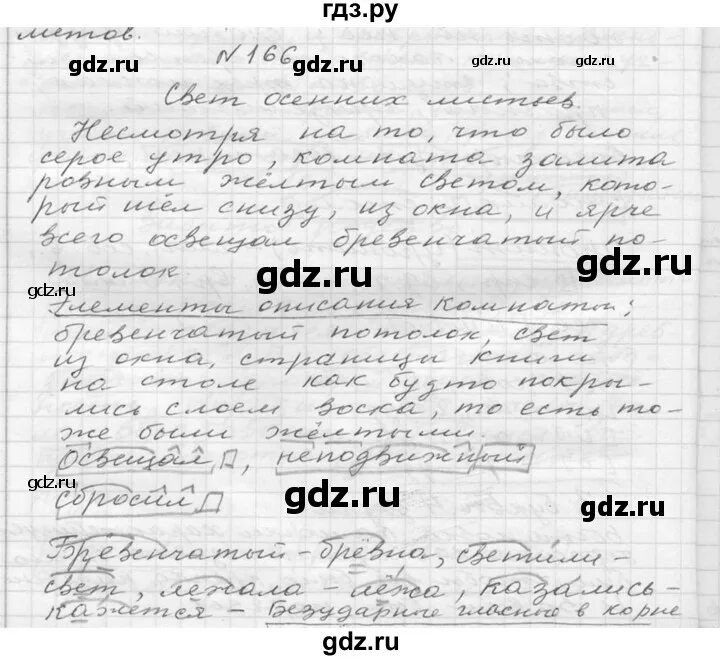 гдз.ру
метов.
N 166
gdz.ru gdz.ru gdz.ru
Свет осенних листьев.
Несмотря на то, что было
серое утро, комната залита
ровным жёлтым светом, кото-
рый шёл снизу, из окна, и ярче
всего освещал бревенчатый по-
толок.
gdz.ru gdz.ru gdz.ru
Элементы описания комнаты:
бревенчатый потолок, свет
из окна, страницы книги
на столе как будто покры-
лись слоем воска, то есть то-
же были жёлтыми.
gdz.ru gdz.ru gdz.ru
Освещал, неподвижный
сбросил
gdz.ru gdz.ru gdz.ru
Бревенчатый – брёвна, светили –
свет, лежала – лёжа, казались –
кажется – Безударные гласные в корне
gdz.ru gdz.ru gdz.ru
gdz.ru